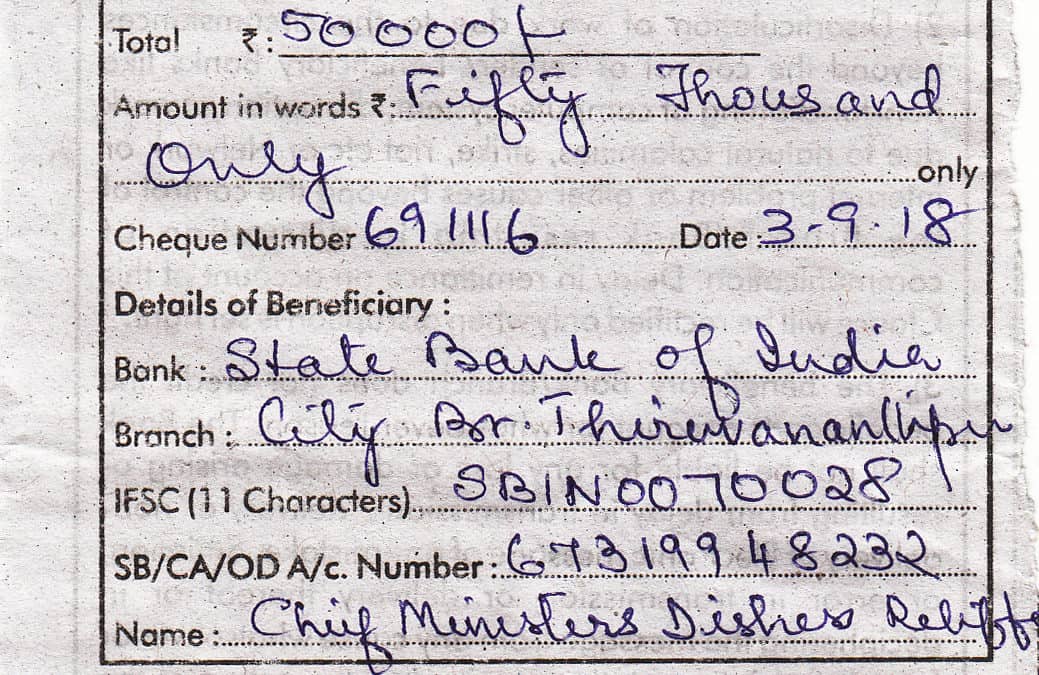 Total ₹: 50000/-
Amount in words ₹: Fifty Thousand
Only only
Cheque Number 691116 Date : 3-9-18
Details of Beneficiary :
Bank : State Bank of India
Branch : City Br. Thiruvananthpu
IFSC (11 Characters) SBIN0070028
SB/CA/OD A/c. Number : 67319948232
Name : Chief Ministers Distress Relief